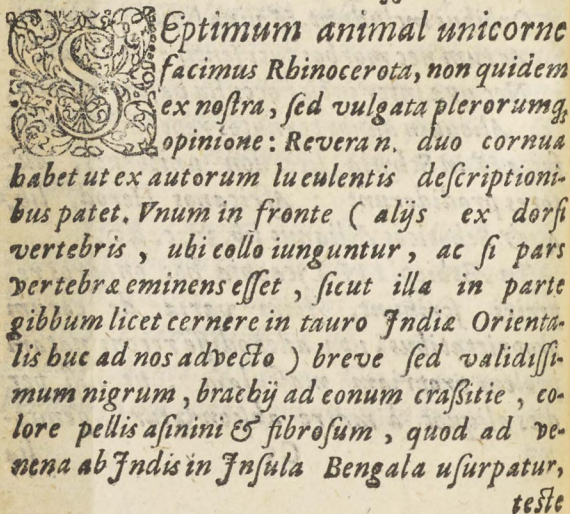 SEptimum animal unicorne
facimus Rhinocerota, non quidem
ex noſtra, ſed vulgata plerorumq;
opinione: Revera n. duo cornua
habet ut ex autorum luculentis deſcriptioni-
bus patet. Vnum in fronte ( alijs ex dorſi
vertebris, ubi collo iunguntur, ac ſi pars
vertebræ eminens eſſet, ſicut illa in parte
gibbum licet cernere in tauro Indiæ Orienta-
lis huc ad nos advecto ) breve ſed validiſſi-
mum nigrum, brachij ad eonum craſſitie, co-
lore pellis aſinini & fibroſum, quod ad ve-
nena ab Indis in Inſula Bengala uſurpatur,
teſte